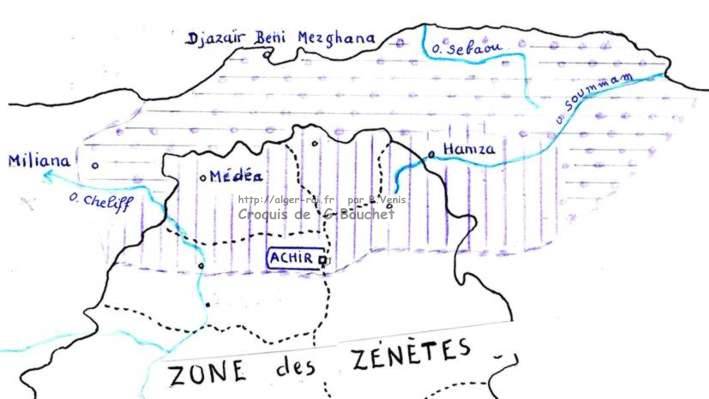 Djazaïr Beni Mezghana
O. Sebaou
O. Soummam
Hamza
Miliana
Médéa
O. Cheliff
http://alger-roi.fr par B.Venis
Croquis de G.Bouchet
ACHIR
ZONE des ZÉNÈTES